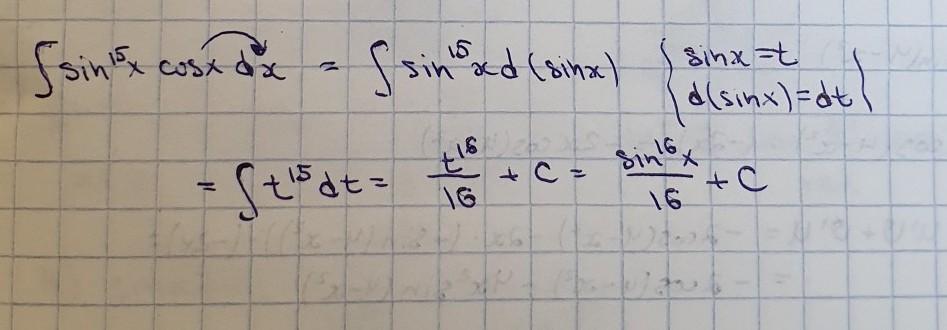 ∫ sin¹⁵x cosx dx = ∫ sin¹⁵x d(sinx) { sinx = t
d(sinx) = dt }
= ∫ t¹⁵ dt = t¹⁶/16 + C = sin¹⁶x/16 + C